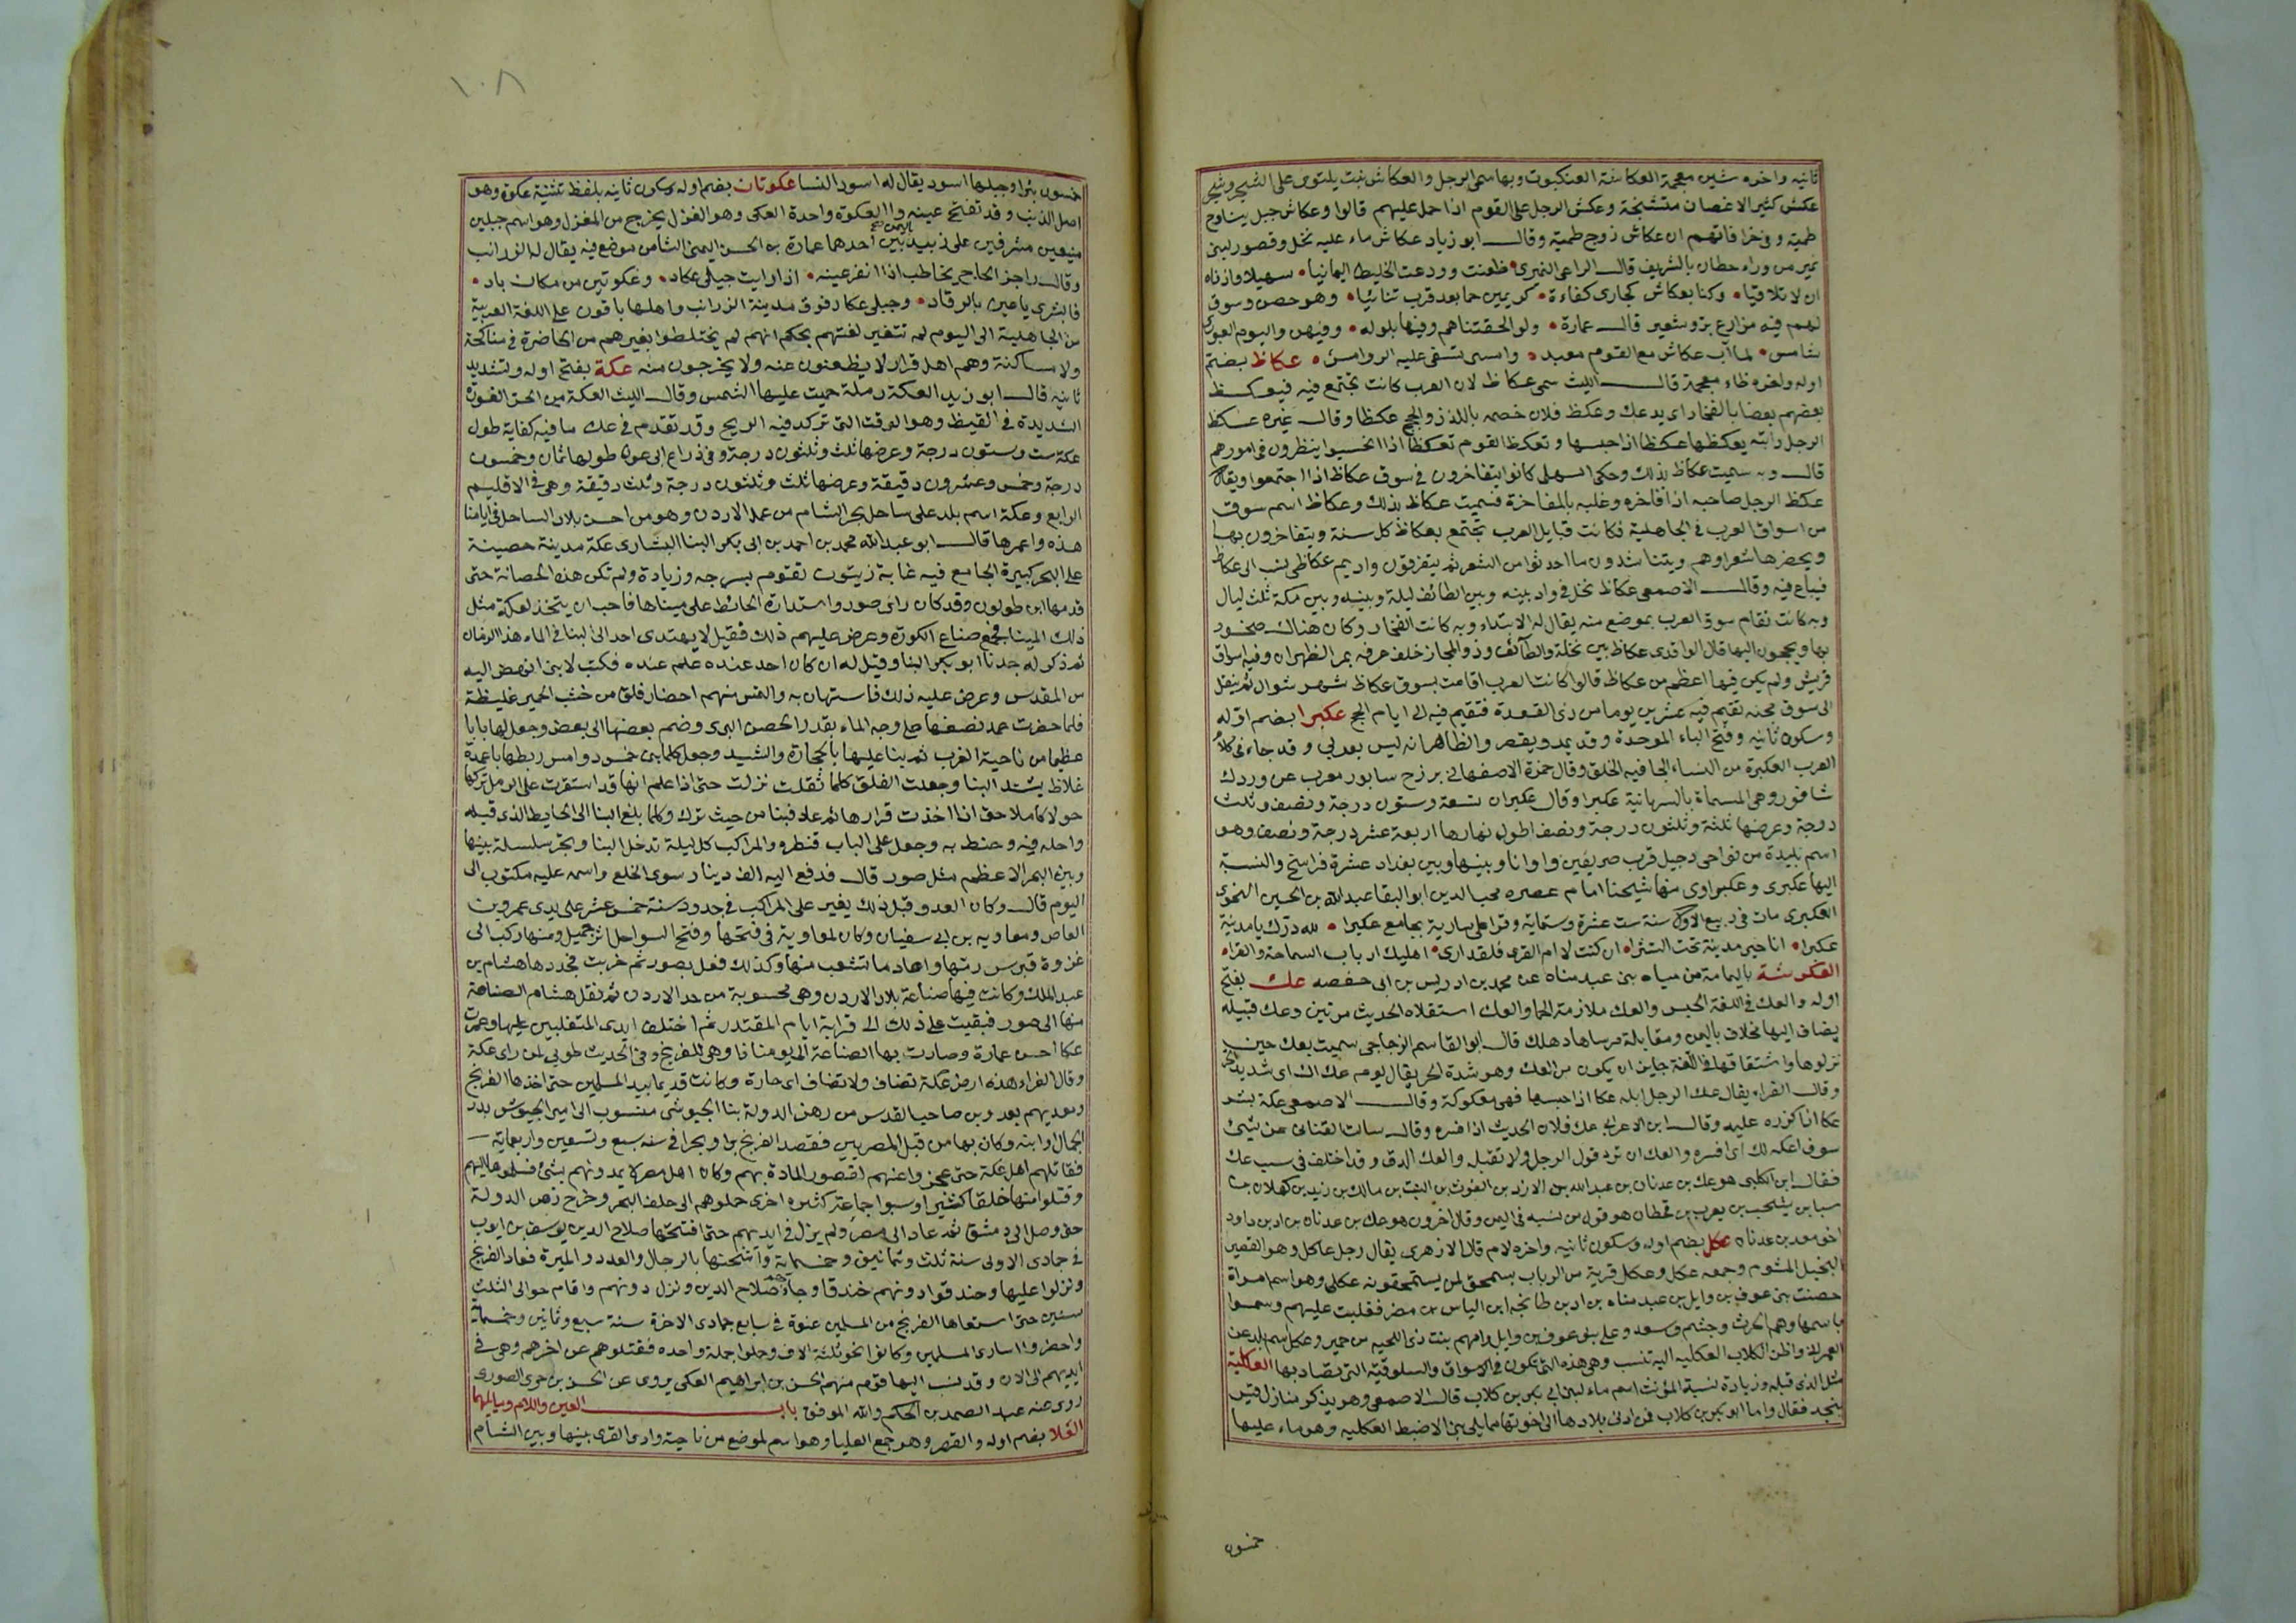 ثانيه واخره شين معجمة العكاشة العنكبوت وبها سمى الرجل والعكاش نبت يلتوى على الشجر وشجر
عكش كثير الاغصان متشنجة وعكش الرجل على القوم اذا حمل عليهم قالوا وعكاش جبل يناوح
طمية وفى خرافاتهم ان عكاش زوج طمية وقال ابو زياد عكاش ماء عليه نخل وقصور لبنى
نمير من وراء حطان بالشريف قال الراعى النميرى ظعنت وودعت الخليط اليمانيا سهيلا واذناه
ان لا تلاقيا وكنا بعكاش كجارى كفاءة كريمين حما بعد قرب تنائيا وهو حصن وسوق
لهم فيه مزارع بر وشعير قال عمارة ولو الحقتناهم وفينا بلوله وفيهن واليوم العبورى
شامس لما آب عكاش مع القوم معبد وامسى تسفى عليه الروامس عكاظ بضم
اوله واخره ظاء معجمة قال الليث سمى عكاظ لان العرب كانت تجتمع فيه فيعكظ
بعضهم بعضا بالفخار اى يدعك وعكظ فلان خصمه باللدد والحجج عكظا وقال غيره عكظ
الرجل دابته يعكظها عكظا اذا حبسها وتعكظ القوم تعكظا اذا تحبسوا ينظرون فى امورهم
قال وبه سميت عكاظ بذلك وحكى السهيلى كانوا يتفاخرون فى سوق عكاظ اذا اجتمعوا ويقال
عكظ الرجل صاحبه اذا فاخره وغلبه بالمفاخرة فسميت عكاظ بذلك وعكاظ اسم سوق
من اسواق العرب فى الجاهلية فكانت قبايل العرب تجتمع بعكاظ كل سنة ويتفاخرون بها
ويحضرها شعراوهم ويتناشدون ما احدثوا من الشعر ثم يتفرقون واديم عكاظى نسب الى عكاظ
فيباع فيه وقال الاصمعى عكاظ نخل فى واد بينه وبين الطائف ليلة وبينه وبين مكة ثلث ليال
وبه كانت تقام سوق العرب بموضع منه يقال له الابتداء وبه كانت الفخار وكان هناك صخور
بها ويحجون اليها قال الواقدى عكاظ بين نخلة والطائف وذو المجاز خلف عرفه بمر الظهران وفيه اسواق
قريش ولم يكن فيها اعظم من عكاظ قالوا كانت العرب اقامت بسوق عكاظ شهر شوال ثم ينقل
الى سوق مجنه تقيم فيه عشرين يوما من ذى القعدة فتقيم فيه الى ايام الحج عكبرا بضم اوله
وسكون ثانيه وفتح الباء الموحدة وقد يمد ويقصر والظاهر انه ليس بعربى وقد جاء فى كلام
العرب العكبرة من النساء الجافيه الخلق وقال حمزة الاصفهانى بزرج سابور معرب عن وردك
شافور وهى المسماة بالسريانية عكبرا وقال عكبران تسعة وستون درجة ونصف وثلث
درجة وعرضها ثلثة وثلثون درجة ونصف اطول نهارها اربعة عشر درجة ونصف وهو
اسم بليدة من نواحى دجيل قرب صريفين واوانا وبينها وبين بغداد عشرة فراسخ والنسبة
اليها عكبرى وعكبراوى منها شيخنا امام عصره محب الدين ابو البقا عبد الله بن الحسين النحوى
العكبرى مات فى ربيع الاول سنة ست عشرة وستماية وقرا على سارية بجامع عكبرا لله درك يا مدينة
عكبرا انا حيى مدينة تحت الثرا ان كنت لا ام القرى فلقد ارى اهليك ارباب السماحة والقرا
العكرشة باليمامة من مياه بنى عبد مناه عن محمد بن ادريس بن ابى حفصه عك بفتح
اوله والعك فى اللغة الحبس والعك ملازمة الحما والعك استقلاه الحديث مرتين وعك قبيله
يضاف اليها مخلاف باليمن ومقابلة مرساها دهلك قال ابو القاسم الزجاجى سميت بعك حين
نزلوها واشتقاقها فى اللغة جايز ان يكون من العك وهو شدة الحر يقال يوم عك اك اى شديد الحر
وقال الفراء يقال عك الرجل ابله عكا اذا حبسها فهى معكوكة وقال الاصمعى عكه بشر
عكا اذا كرره عليه وقال ابن الاعرابى عك فلان الحديث اذا فسره وقال سالت القنانى عن شىء
سوف اعكه لك اى افسره والعك ان ترد قول الرجل ولا تقبله والعك الدق وقد اختلف فى سبب عك
فقال ابن الكلبى هو عك بن عدنان بن عبد الله بن الازد بن الغوث بن النبت بن مالك بن زيد بن كهلان بن
سبا بن يشجب بن يعرب بن قحطان هو قول من نسبه فى اليمن وقال اخرون هو عك بن عدنان بن ادد بن داود
اخو معد بن عدنان عكل بضم اوله وسكون ثانيه واخره لام قال الازهرى يقال رجل عاكل وهو القصير
البخيل المشوم وجمعه عكل وعكل قرية من الرباب يستحمق لمن يستحمقونه عكلى وهو اسم امراة
حضنت بنى عوف بن وايل بن عبد مناه بن اد بن طابخة ابن الياس بن مضر فغلبت عليهم وسموا
باسمها وهم الحرث وجشم وسعد وعلى بنو عوف بن وايل وامهم بنت ذى اللحيه من حمير وعكل اسم بلد عن
العمرانى واظن الكلاب العكليه اليه تنسب وهى هذه التى تكون فى الاسواق والسلوقية التى يصاد بها العكلية
مثل الذى قبله وزيادة نسبة المؤنث اسم ماء لبنى ابى بكر بن كلاب قال الاصمعى وهو يذكر منازل قيس
بنجد فقال واما ابو بكر بن كلاب فمن ادنى بلادها الى اخوتها مما يلى بنى الاضبط العكليه وهو ماء عليها
خمسون
١٠٨
خمسون بئرا وجبلها اسود يقال له اسود النسا عكوتان بضم اوله وسكون ثانيه بلفظ تثنية عكوة وهو
اصل الذنب وقد تفتح عينه والعكوة واحدة العكى وهو الغزل يخرج من المغزل وهو اسم جبلين
منيعين مشرفين على زبيد باليمن احدهما عمارة بن الحسن اليمنى الشاعر من موضع فيه يقال له الزرائب
وقال راجز الحاج يخاطب اذا نفر عينه اذا رايت جبلى عكاد وعكوتين من مكان باد
فابشرى يا عين بالرقاد وجبلى عكاد فوق مدينة الزرائب واهلها باقون على اللغة العربية
من الجاهلية الى اليوم لم تتغير لغتهم بحكم انهم لم يختلطوا بغيرهم من الحاضرة فى مناكحة
ولا مساكنة وهم اهل قرار لا يظعنون عنه ولا يخرجون منه عكة بفتح اوله وتشديد
ثانيه قال ابو زيد العكة رملة حميت عليها الشمس وقال الليث العكة من الحر الفورة
الشديدة فى القيظ وهو الوقت التى تركد فيه الريح وقد تقدم فى عك ما فيه كفاية طول
عكة ست وستون درجة وعرضها ثلث وثلثون درجة وفى ذراع ابى عون طولها ثمان وخمسون
درجة وخمس وعشرون دقيقة وعرضها ثلث وثلثون درجة وثلث دقيقة وهى فى الاقليم
الرابع وعكة اسم بلد على ساحل بحر الشام من عمل الاردن وهو من احسن بلاد الساحل فى ايامنا
هذه واعمرها قال ابو عبد الله محمد بن احمد بن ابى بكر البنا البشارى عكة مدينة حصينة
على البحر كبيرة الجامع فيه غابة زيتون تقوم بسرجه وزيادة ولم تكن هذه الحصانة حتى
قدمها ابن طولون وقد كان راى صور واستدارة الحائط على ميناها فاحب ان يتخذ لعكة مثل
ذلك المينا فجمع صناع الكورة وعرض عليهم ذلك فقيل لا يهتدى احد الى البنا فى الماء هذا الزمان
ثم ذكر له جدنا ابو بكر البنا وقيل له ان كان احد عنده علم عنده فكتب لابى انهض اليه
من المقدس وعرض عليه ذلك فاستهان به والتمس منهم احضار فلق من خشب الجميز غليظة
فلما حضرت عمد نصفها على وجه الماء بقدر الحصن البرى وضم بعضها الى بعض وجعل لها بابا
عظيما من ناحية الغرب ثم بنا عليها بالحجارة والشيد وجعل كلما بنى خمس دوامس ربطها باعمدة
غلاظ يشتد البنا وجعلت الفلق كلما ثقلت نزلت حتى اذا علم انها قد استقرت على الرمل تركها
حولا كاملا حتى اذا اخذت قرارها ثم عاد فبنا من حيث ترك وكلما بلغ البنا الى الحايط الذى قبله
واحله فيه وحنط به وجعل على الباب قنطره والمراكب كل ليلة تدخل البنا وتجر سلسلة بينها
وبين البحر الاعظم مثل صور قال فدفع اليه الف دينار سوى الخلع واسمه عليه مكتوب الى
اليوم قال وكان العدو قبل ذلك يغير على المراكب فى حدود سنة خمس عشر على يدى عمرو بن
العاص ومعاويه بن ابى سفيان وكان لمعاوية فى فتحها وفتح السواحل اثر جميل ومنها ركب الى
غزوة قبرس رمها واعاد ما تشعب منها وكذلك فعل بصور ثم خربت فجددها هشام بن
عبد الملك وكانت فيها صناعة بلاد الاردن وهى محسوبة من حد الاردن ثم نقل هشام الصناعة
منها الى صور فبقيت على ذلك الى قرابة ايام المقتدر ثم اختلف ايدى المتغلبين عليها وعمرت
عكا احسن عمارة وصارت بها الصناعة الى يومنا ذا وهى للفرنج وفى الحديث طوبى لمن راى عكة
وقال الفراء هذه ارض عكة تضاف ولا تضاف اى حارة وكانت قديما بيد المسلمين حتى اخذها الفرنج
ومعديهم بعدوين صاحب القدس من زهر الدولة بنا الجيوشى منسوب الى امير الجيوش بدر
الجمال او ابنه وكان بها من قبل المصريين فقصد الفرنج برا وبحرا فى سنه سبع وتسعين واربعماية
فقاتلهم اهل عكة حتى عجزوا عنهم لقصور المادة بهم وكان اهل مصر لا يمدونهم بشئ فسلموها اليهم
وقتلوا منها خلقا كثيرا وسبوا جماعة كثيره اخرى حملوهم الى خلف البحر وخرج زهر الدولة
حتى وصل الى دمشق ثم عاد الى مصر ولم يزل فى ايديهم حتى افتتحها صلاح الدين يوسف بن ايوب
فى جمادى الاولى سنة ثلث وثمانين وخمسماية واشحنها بالرجال والعدد والميرة فعاد الفرنج
ونزلوا عليها وحندقوا دونهم خندقا وجاء صلاح الدين ونزل دونهم واقام حوالى الثلث
سنين حتى استعاها الفرنج من المسلمين عنوة فى سابع جمادى الاخرة سنة سبع وثمانين وخمسماية
واحضروا اسارى المسلمين وكانوا نحو ثلثة الاف وحملوا جملة واحده فقتلوهم عن اخرهم وهى فى
ايديهم الى الان وقد نسب اليها قوم منهم الحسن بن ابراهيم العكى يروى عن الحسن بن جرير الصورى
روى عنه عبد الصمد بن الحكم والله الموفق باب العين واللام وما يليهما
العلا بضم اوله والقصر وهو جمع العليا وهو اسم لموضع من ناحية وادى القرى بينها وبين الشام